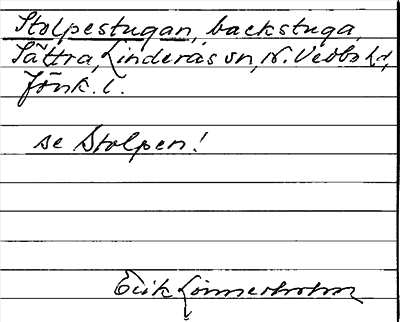 Stolpestugan, backstuga
Sättra, Linderås sn, N. Vedbo hd,
Jönk. l.
se Stolpen!
Erik Lönnerholm